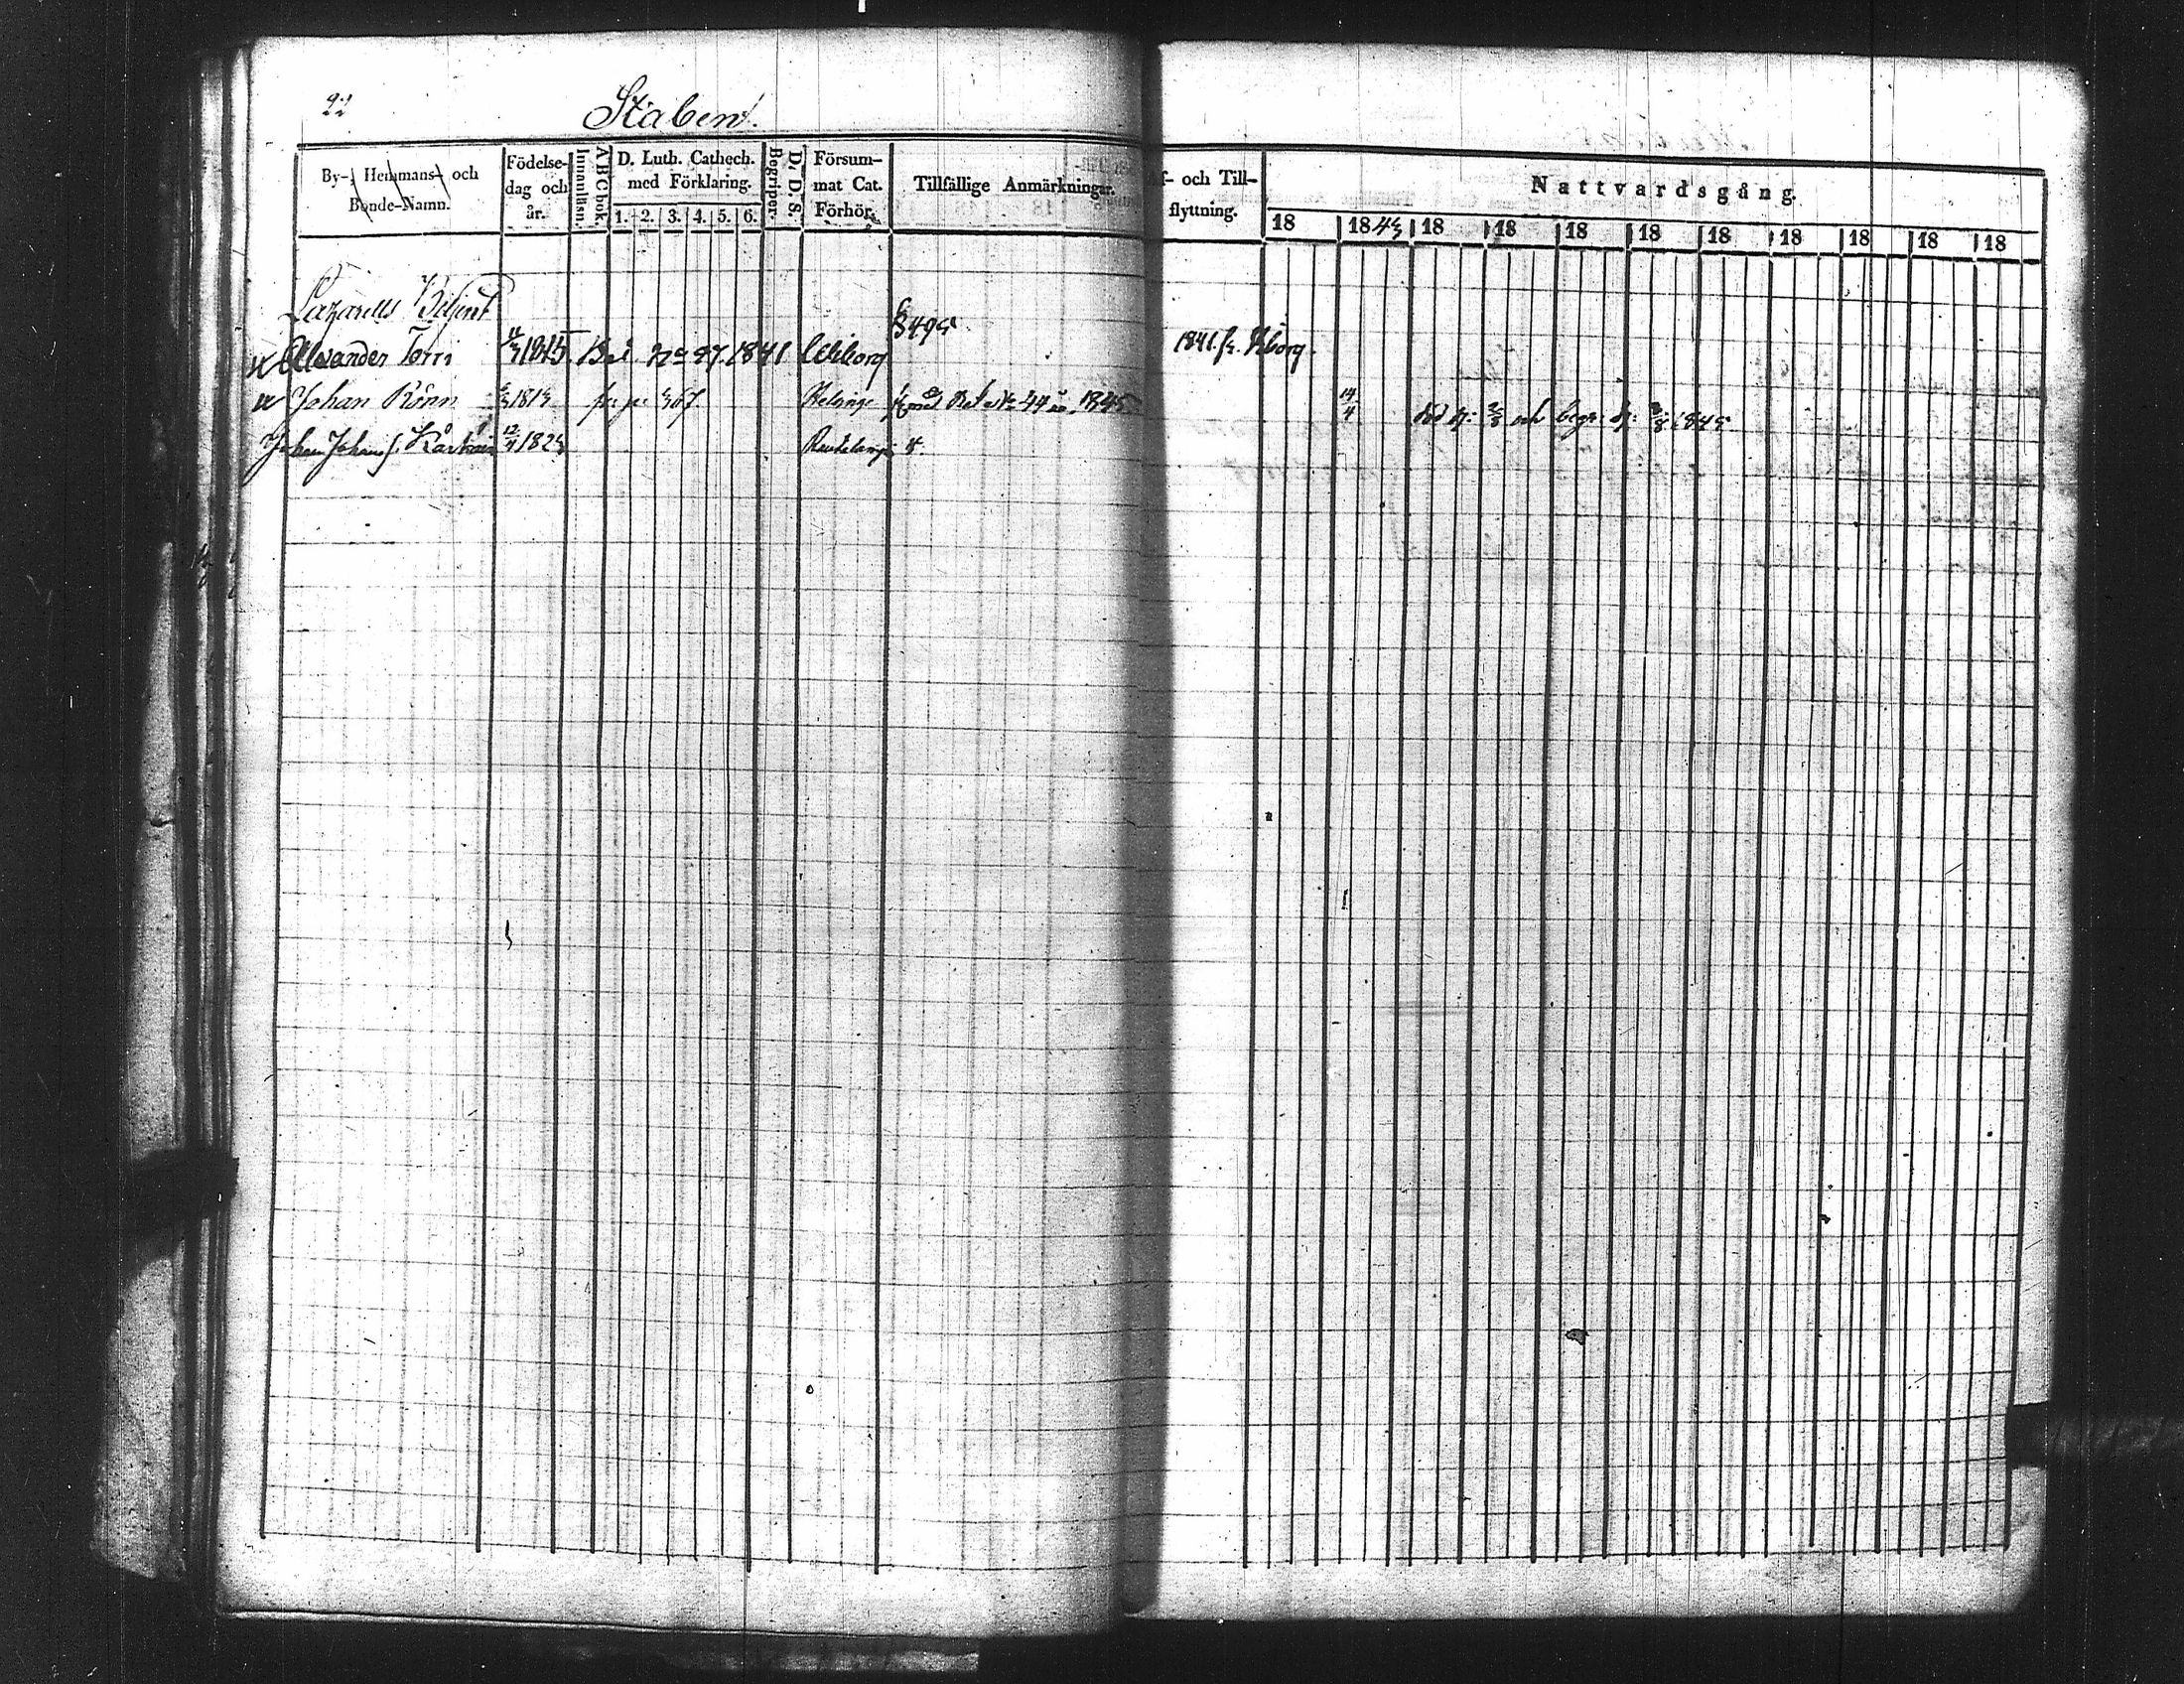 22
Staben.
By-, Hemmans- och Bonde-Namn.
Födelse-dag och år.
ABC bok.
Innanläsn.
D. Luth. Cathech. med Förklaring.
1. 2. 3. 4. 5. 6.
D:o D:S.
Begripper.
Försum-mat Cat. Förhör.
Tillfällige Anmärkningar.
f- och Till-flyttning.
Nattvardsgång.
18 1843 18 18 18 18 18 18 18 18 18
Lazaretts
Alexander Torri 1815 Bet. No 27. 1841 Wiborg 1841. fr. Wiborg.
Johan Rönn 1813 Helsinge Bet. No 44 1845 14/4 död och begr. 1845
Johan Johans s. 12/4 1823